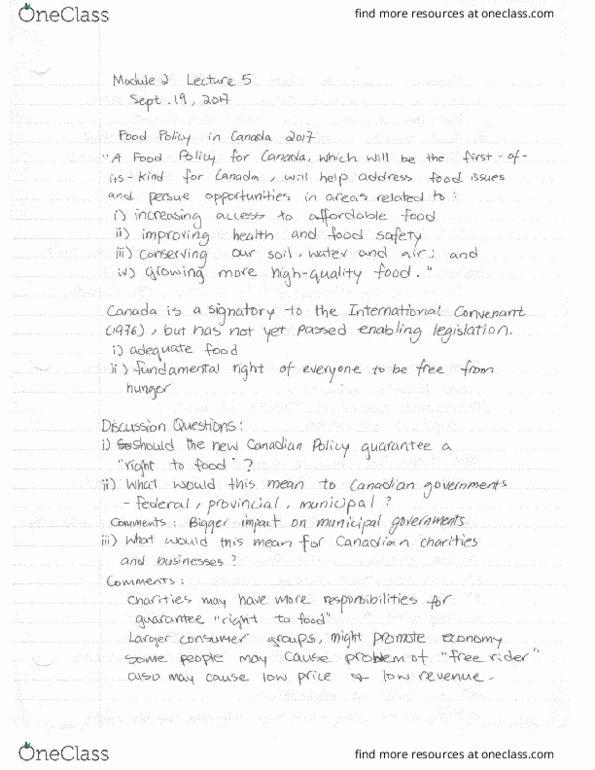 OneClass
find more resources at oneclass.com
Module 2 Lecture 5
Sept. 19, 2017
Food Policy in Canada 2017
"A Food Policy for Canada, which will be the first-of-
its-kind for Canada, will help address food issues
and persue opportunities in areas related to:
i) increasing access to affordable food
ii) improving health and food safety
iii) conserving our soil, water and air; and
iv) growing more high-quality food."
Canada is a signatory to the International Convenant
(1976), but has not yet passed enabling legislation.
i) adequate food
ii) fundamental right of everyone to be free from
hunger
Discussion Questions:
i) Should the new Canadian Policy guarantee a
"right to food"?
ii) What would this mean to Canadian governments
- federal, provincial, municipal?
Comments: Bigger impact on municipal governments
iii) What would this mean for Canadian charities
and businesses?
Comments:
charities may have more responsibilities for
guarantee "right to food"
Larger consumer groups, might promote economy
some people may cause problem of "free rider"
also may cause low price & low revenue.
OneClass
find more resources at oneclass.com